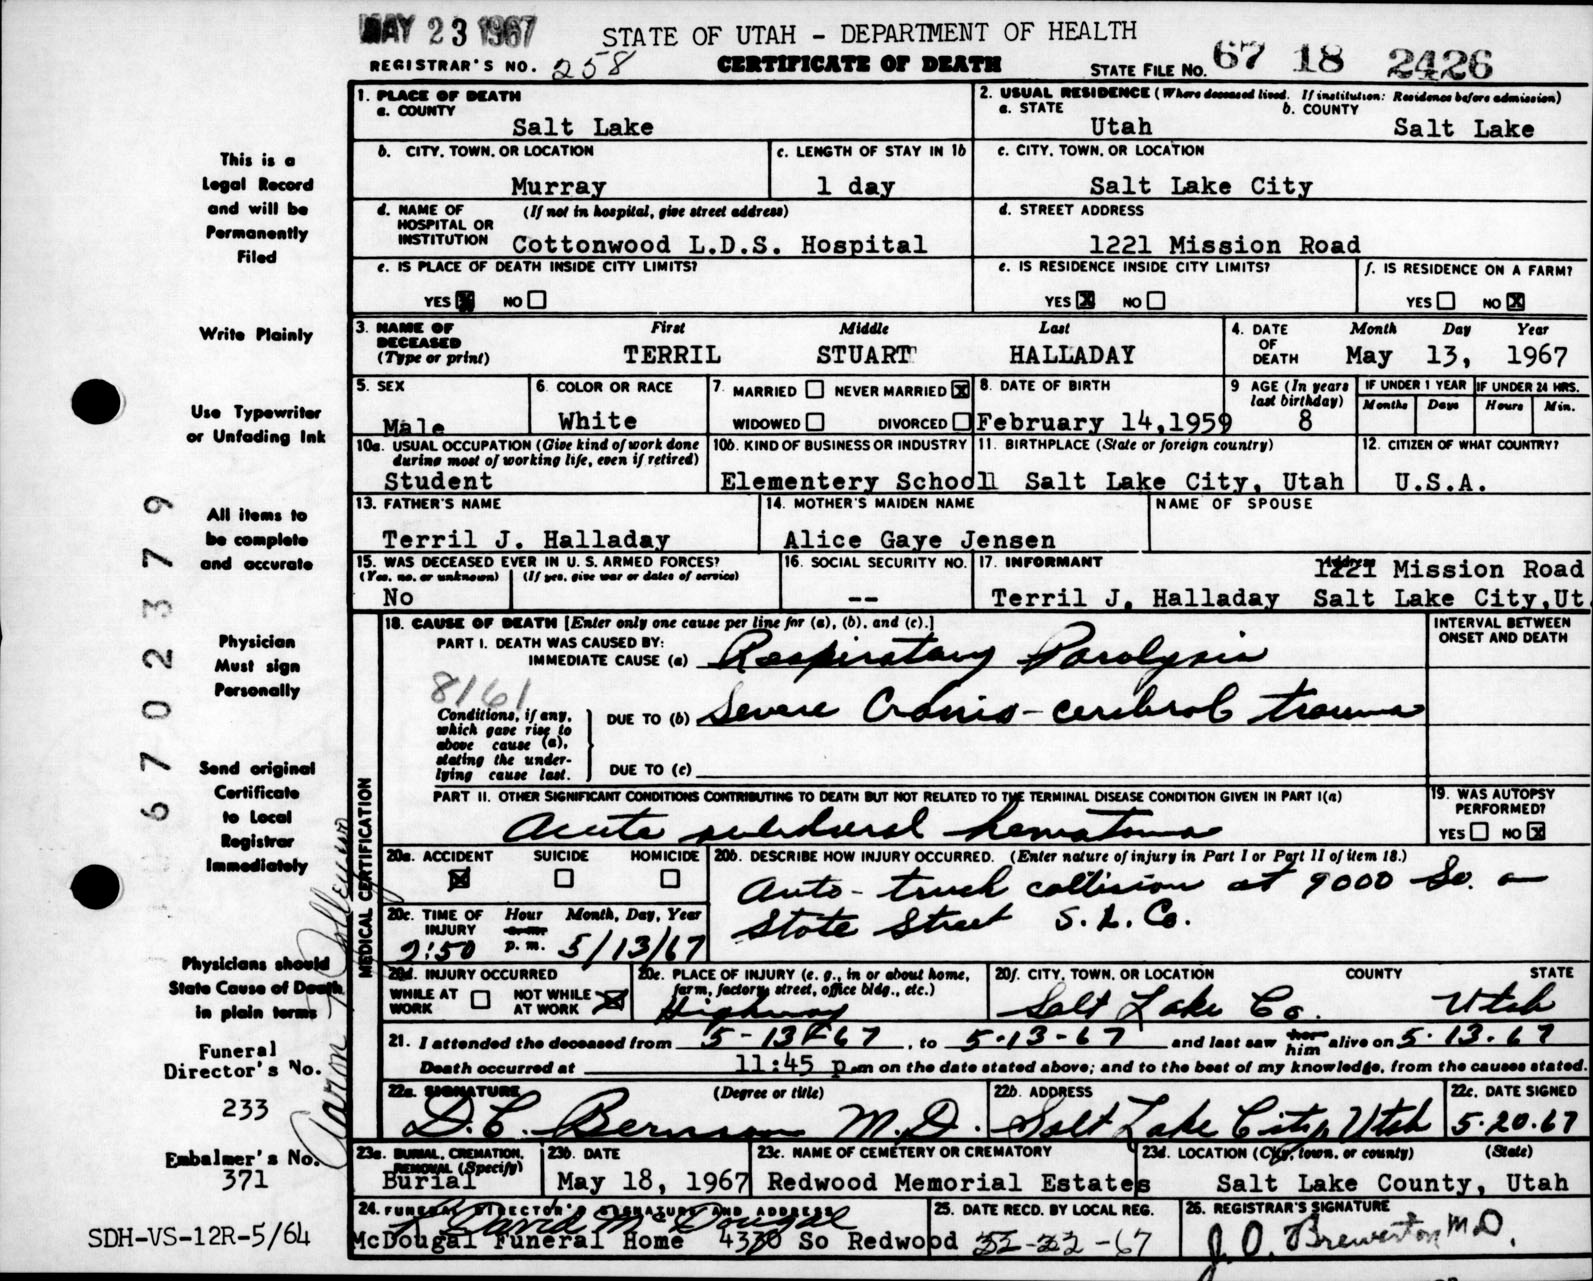 MAY 23 1967
STATE OF UTAH - DEPARTMENT OF HEALTH
REGISTRAR'S NO. 258
CERTIFICATE OF DEATH
STATE FILE NO. 67 18 2426
1. PLACE OF DEATH
a. COUNTY
Salt Lake
2. USUAL RESIDENCE (Where deceased lived. If institution: Residence before admission)
a. STATE b. COUNTY
Utah Salt Lake
b. CITY, TOWN, OR LOCATION
Murray
c. LENGTH OF STAY IN 1b
1 day
c. CITY, TOWN, OR LOCATION
Salt Lake City
d. NAME OF HOSPITAL OR INSTITUTION (If not in hospital, give street address)
Cottonwood L.D.S. Hospital
d. STREET ADDRESS
1221 Mission Road
e. IS PLACE OF DEATH INSIDE CITY LIMITS?
YES X NO
e. IS RESIDENCE INSIDE CITY LIMITS?
YES X NO
f. IS RESIDENCE ON A FARM?
YES NO X
3. NAME OF DECEASED (Type or print)
First Middle Last
TERRIL STUART HALLADAY
4. DATE OF DEATH
Month Day Year
May 13, 1967
5. SEX
Male
6. COLOR OR RACE
White
7. MARRIED NEVER MARRIED X
WIDOWED DIVORCED
8. DATE OF BIRTH
February 14,1959
9 AGE (In years last birthday)
8
IF UNDER 1 YEAR
Months Days
IF UNDER 24 HRS.
Hours Min.
10a. USUAL OCCUPATION (Give kind of work done during most of working life, even if retired)
Student
10b. KIND OF BUSINESS OR INDUSTRY
Elementery School
11. BIRTHPLACE (State or foreign country)
Salt Lake City, Utah
12. CITIZEN OF WHAT COUNTRY?
U.S.A.
13. FATHER'S NAME
Terril J. Halladay
14. MOTHER'S MAIDEN NAME
Alice Gaye Jensen
NAME OF SPOUSE
15. WAS DECEASED EVER IN U. S. ARMED FORCES?
(Yes, no, or unknown) (If yes, give war or dates of service)
No
16. SOCIAL SECURITY NO.
--
17. INFORMANT Address
1221 Mission Road
Terril J. Halladay Salt Lake City,Ut.
MEDICAL CERTIFICATION
18. CAUSE OF DEATH [Enter only one cause per line for (a), (b), and (c).]
INTERVAL BETWEEN ONSET AND DEATH
PART I. DEATH WAS CAUSED BY:
IMMEDIATE CAUSE (a) Respiratory Paralysis
8161
Conditions, if any, which gave rise to above cause (a), stating the underlying cause last.
DUE TO (b) Severe Cranio-cerebral trauma
DUE TO (c)
PART II. OTHER SIGNIFICANT CONDITIONS CONTRIBUTING TO DEATH BUT NOT RELATED TO THE TERMINAL DISEASE CONDITION GIVEN IN PART I(a)
Acute subdural hematoma
19. WAS AUTOPSY PERFORMED?
YES NO X
20a. ACCIDENT SUICIDE HOMICIDE
X
20b. DESCRIBE HOW INJURY OCCURRED. (Enter nature of injury in Part I or Part II of item 18.)
Auto-truck collision at 9000 So. on
State Street S. L. Co.
20c. TIME OF INJURY
Hour Month, Day, Year
2:50 p. m. 5/13/67
20d. INJURY OCCURRED
WHILE AT WORK NOT WHILE AT WORK X
20e. PLACE OF INJURY (e. g., in or about home, farm, factory, street, office bldg., etc.)
Highway
20f. CITY, TOWN, OR LOCATION COUNTY STATE
Salt Lake Co. Utah
21. I attended the deceased from 5-13-67, to 5-13-67 and last saw her him alive on 5.13.67
Death occurred at 11:45 p.m on the date stated above; and to the best of my knowledge, from the causes stated.
22a. SIGNATURE (Degree or title)
D. C. Bernson M.D.
22b. ADDRESS
Salt Lake City, Utah
22c. DATE SIGNED
5-20-67
23a. BURIAL, CREMATION, REMOVAL (Specify)
Burial
23b. DATE
May 18, 1967
23c. NAME OF CEMETERY OR CREMATORY
Redwood Memorial Estates
23d. LOCATION (City, town, or county) (State)
Salt Lake County, Utah
24. FUNERAL DIRECTOR'S SIGNATURE AND ADDRESS
David McDougal
McDougal Funeral Home 4330 So Redwood
25. DATE RECD. BY LOCAL REG.
-22-67
26. REGISTRAR'S SIGNATURE
J. O. Brewerton M.D.
This is a
Legal Record
and will be
Permanently
Filed
Write Plainly
Use Typewriter
or Unfading Ink
All items to
be complete
and accurate
Physician
Must sign
Personally
Send original
Certificate
to Local
Registrar
Immediately
Physicians should
State Cause of Death
in plain terms
Funeral
Director's No.
233
Embalmer's No.
371
SDH-VS-12R-5/64
67 02379